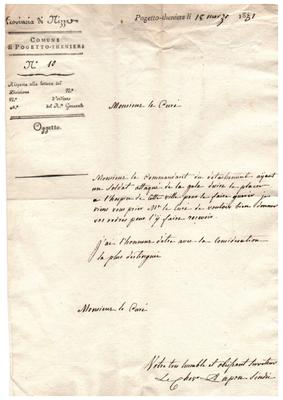 Provincia di Nizza
COMUNE
di POGETTO-THENIERS
N.º 10
Risposta alla lettera del
Divisione
N.º d'ordine
N.º del R.º Generale
Oggetto.
Pogetto-theniers li 15 marzo 1831
Monsieur le Curé
Monsieur le commandant du detachement ayant
un soldat attaqué de la gale desire le placer
a l'hospice de cette ville pour le faire guerir
viens vous prier Mr le Curé de vouloir bien donner
vos ordres pour l'y faire recevoir
j'ai l'honneur d'être avec la consideration
la plus distinguée
Monsieur le Curé
Votre très humble et obéissant serviteur
Le Chev.